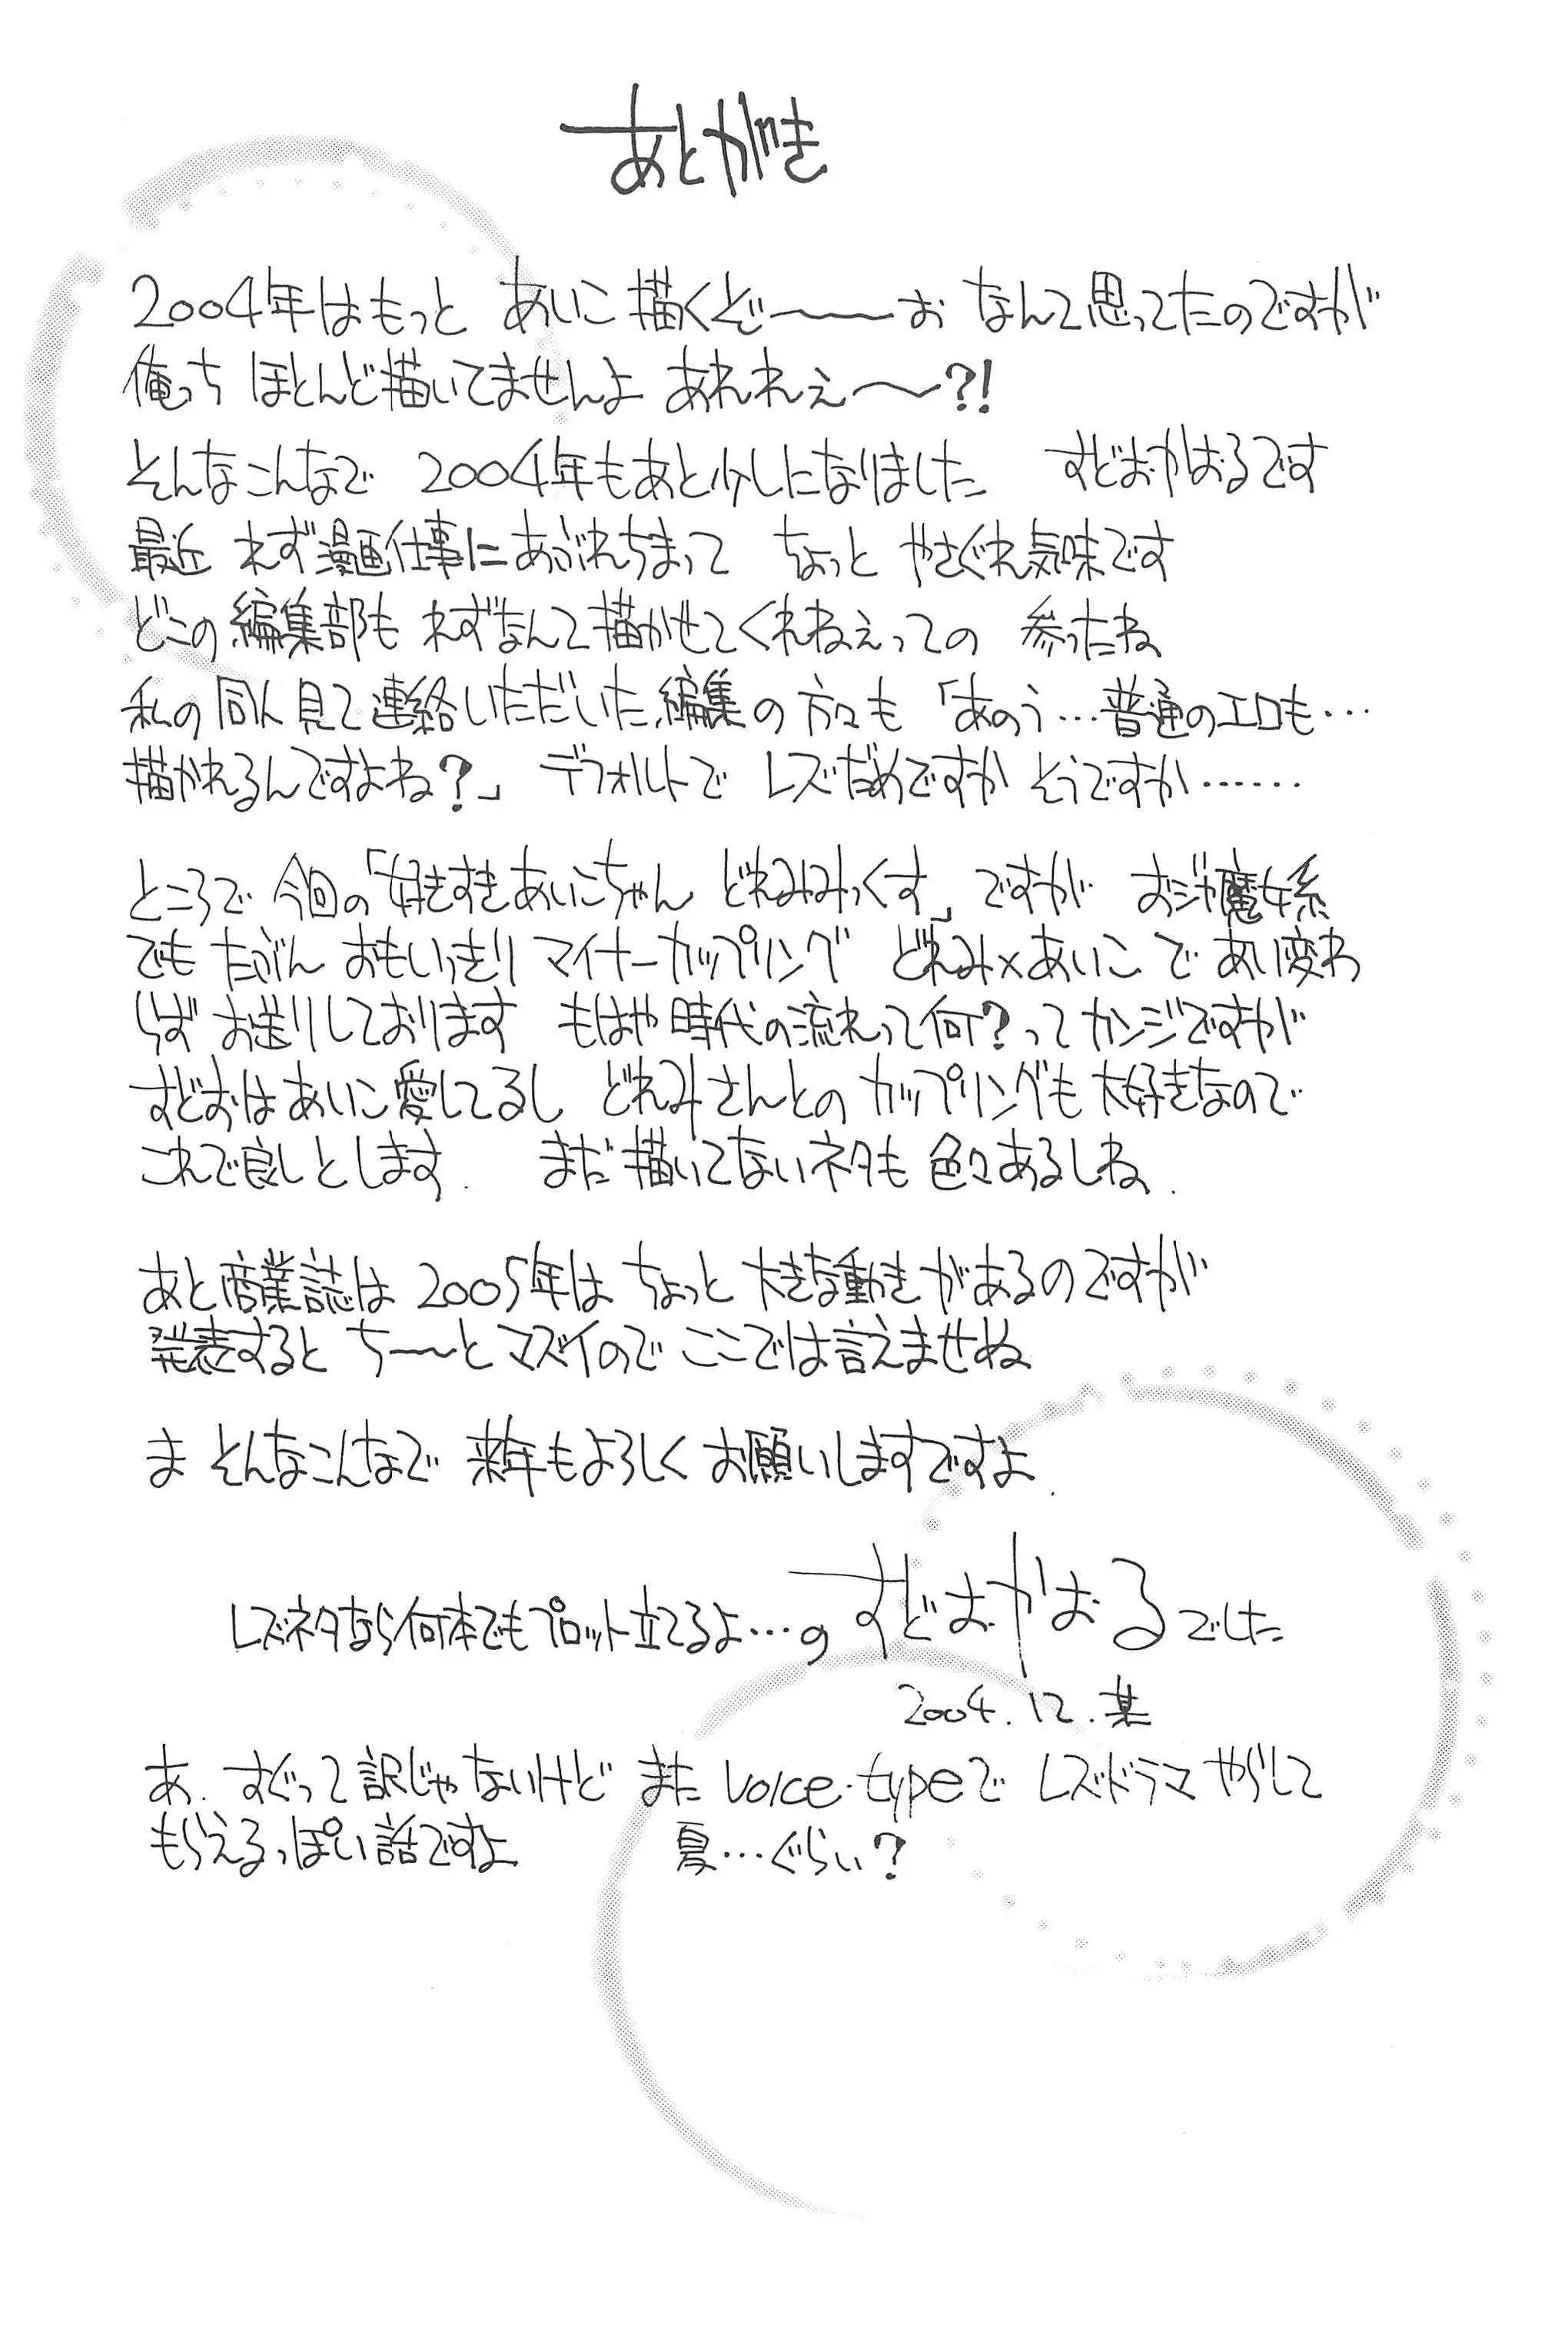 あとがき
2004年はもっと あいこ描くぞ〜〜〜お なんて思ってたのですが
俺っち ほとんど描いてませんよ あれれぇ〜?!
そんなこんなで 2004年もあと少しになりました すどおかおるです
最近 れず漫画仕事にあぶれちまって ちょっと やさぐれ気味です
どこの編集部も れずなんて描かせてくれねぇっての 参ったね
私の同人見て連絡いただいた編集の方々も 「あのう…普通のエロも…
描かれるんですよね?」 デフォルトで レズだめですか そうですか……
ところで 今回の「好きすきあいこちゃん どれみみっくす」ですが おジャ魔女系
でも たぶん おもいっきりマイナーカップリング どれみ×あいこ で あい変わ
らず お送りしております もはや時代の流れって何?ってカンジですが
すどおはあいこ愛してるし どれみさんとのカップリングも大好きなので
これで良しとします. まだ描いてないネタも 色々あるしね.
あと商業誌は 2005年は ちょっと大きな動きがあるのですが
発表すると ち〜とマズイので ここでは言えませぬ
ま そんなこんなで 来年もよろしくお願いしますですよ.
レズネタなら何本でもプロット立てるよ…の すどおかおるでした
2004.12.某
あ. すぐって訳じゃないけど また voice・typeで レズドラマやらして
もらえるっぽい話ですよ 夏…ぐらい?